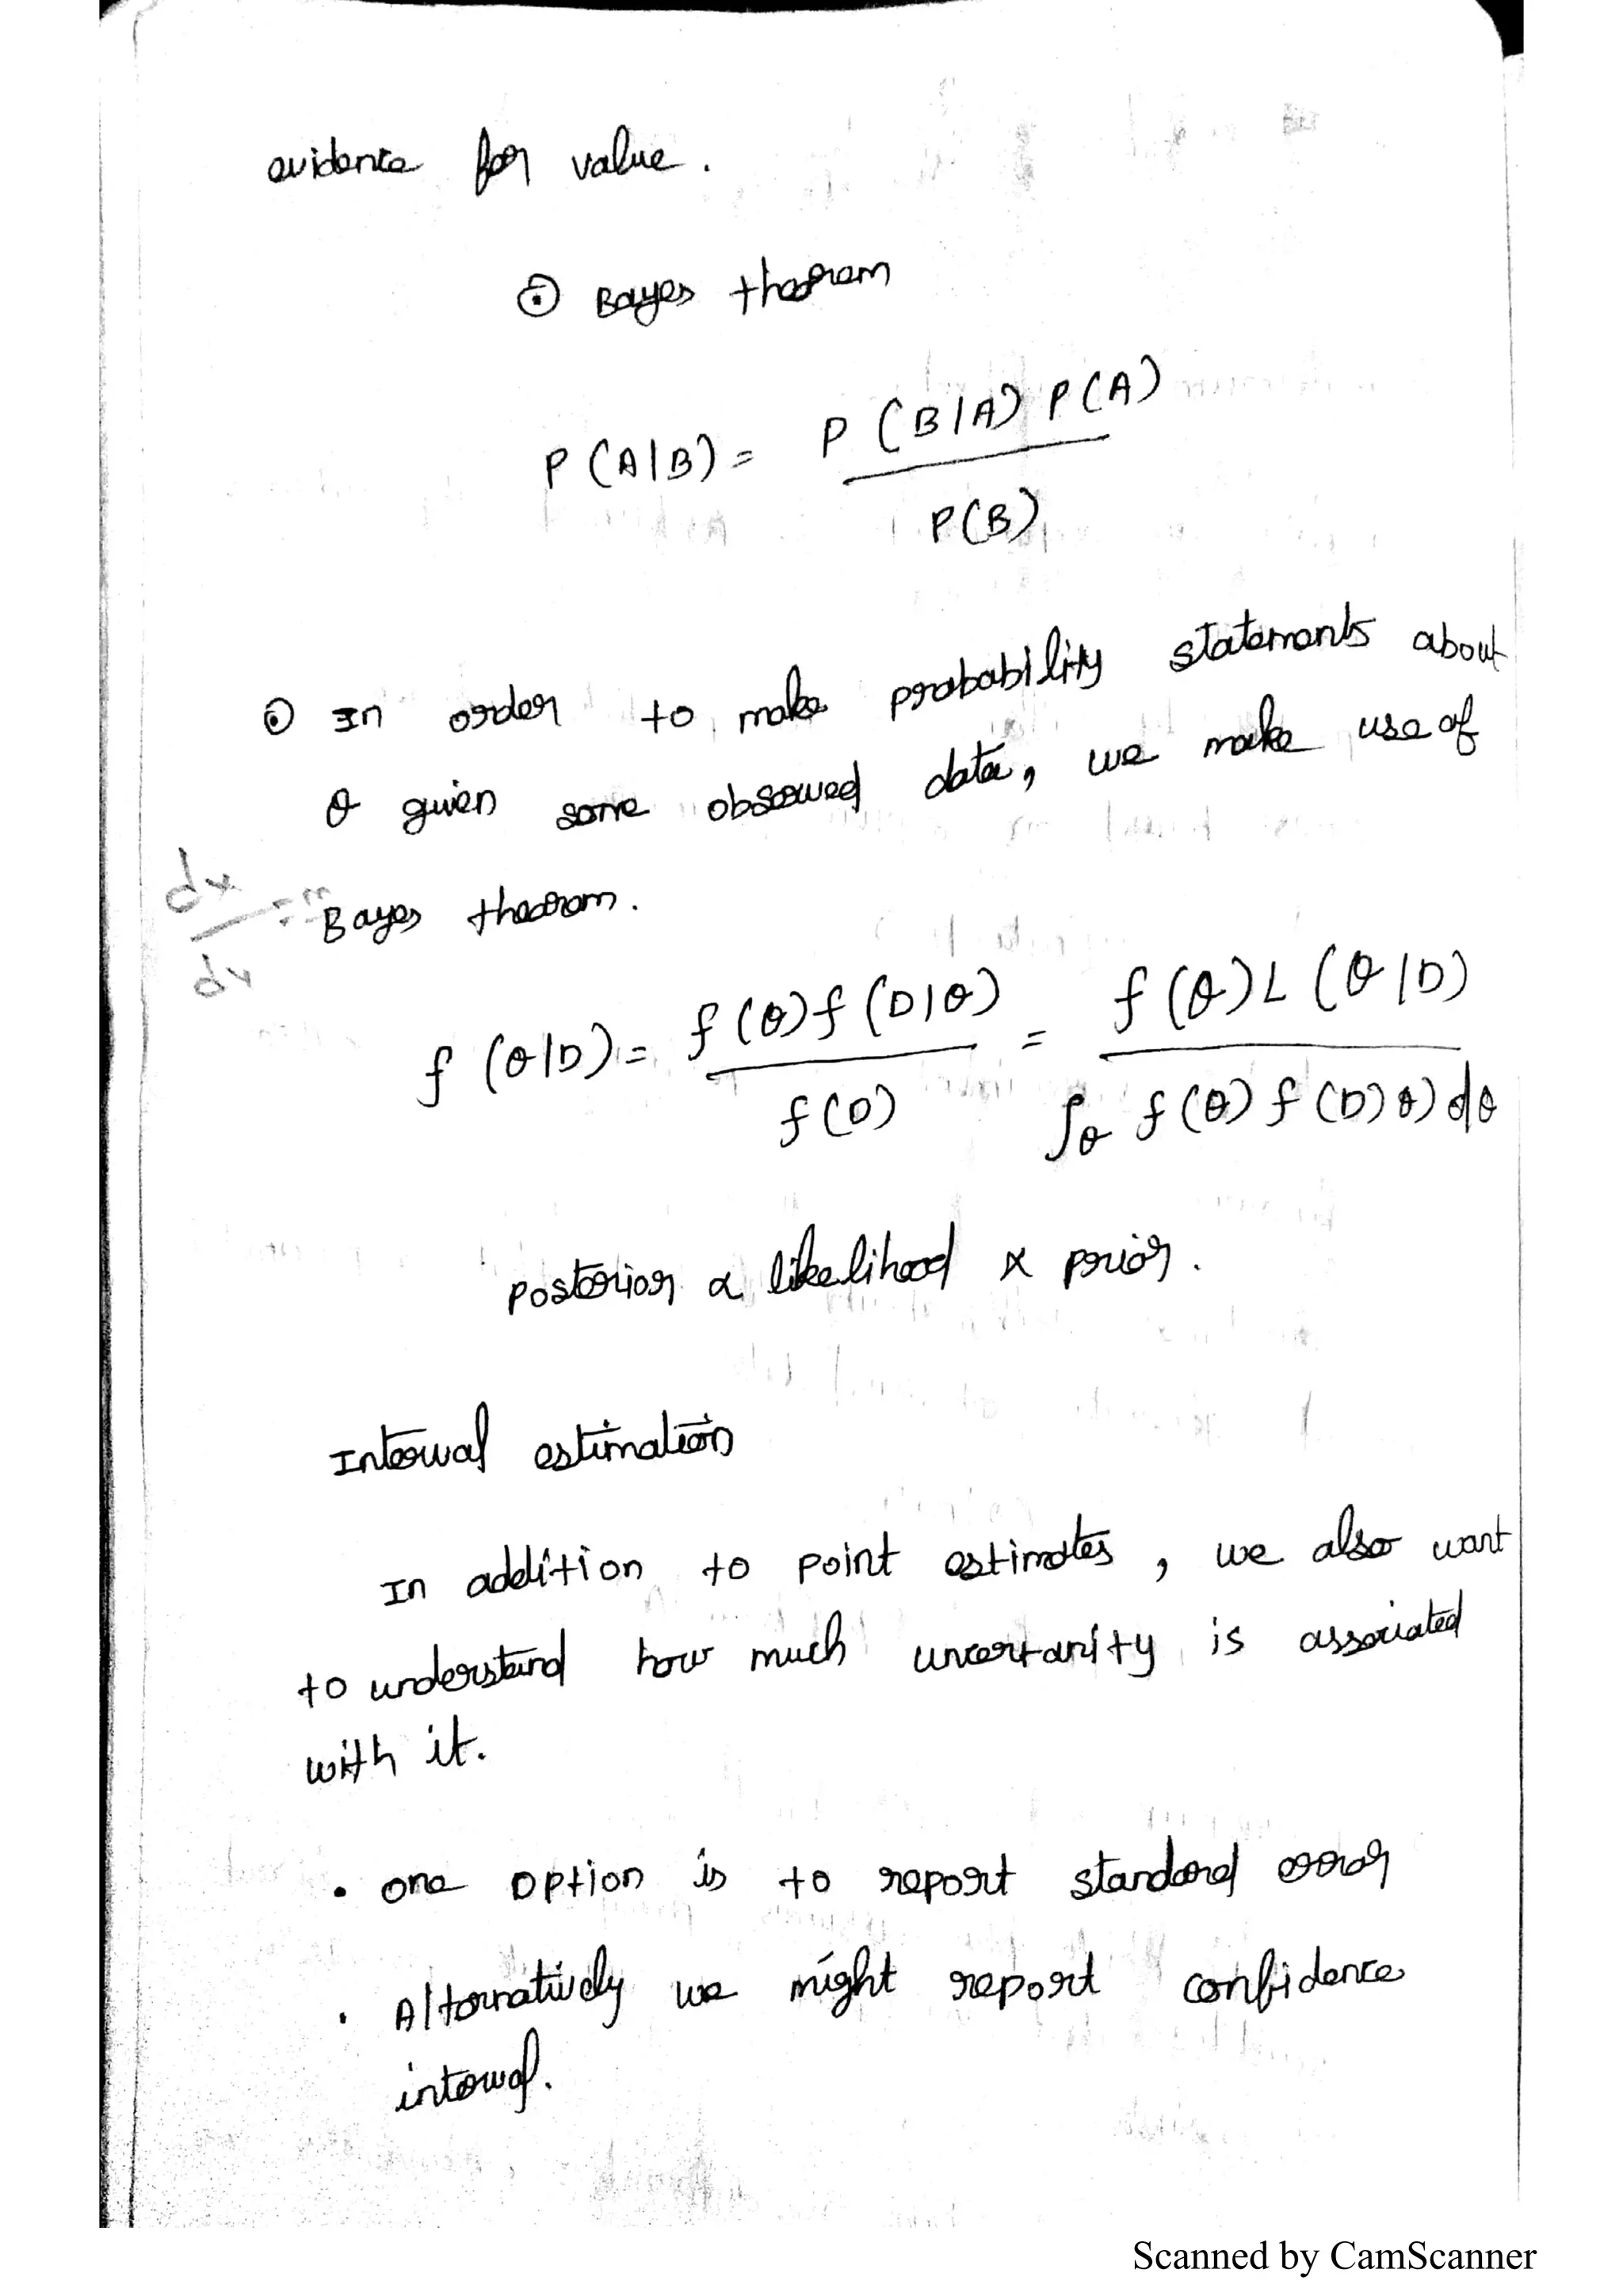 evidence for value.
⊙ Bayes theorem
P(A|B) = P(B|A) P(A)
P(B)
⊙ In order to make probability statements about
θ given some observed data, we make use of
Bayes theorem.
dx
dx
f(θ|D) = f(θ)f(D|θ) = f(θ)L(θ|D)
f(D) ∫θ f(θ) f(D)θ)dθ
posterior α likelihood x prior.
Interval estimation
In addition to point estimates, we also want
to understand how much uncertanity is associated
with it.
• one option is to report standard error
• Alternatively we might report confidence
interval.
Scanned by CamScanner